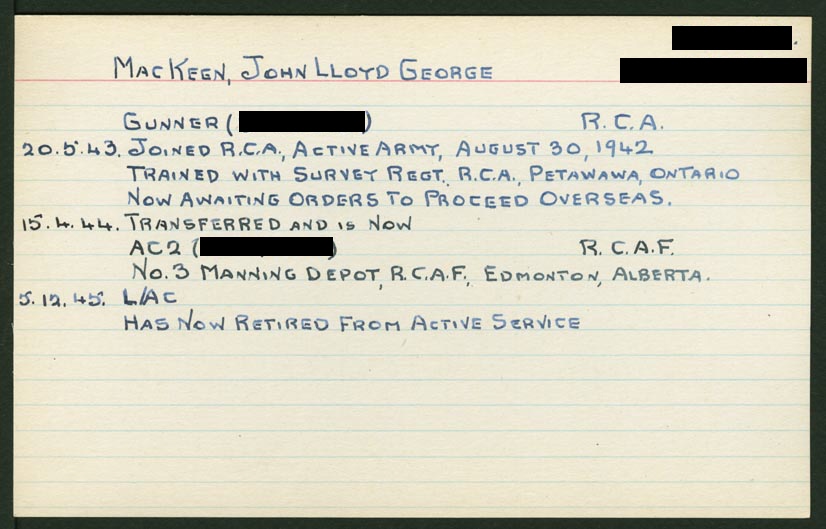 MacKeen, John Lloyd George
Gunner ( ) R.C.A.
20.5.43. Joined R.C.A., Active Army, August 30, 1942
Trained with Survey Regt. R.C.A., Petawawa, Ontario
Now Awaiting Orders To Proceed Overseas.
15.4.44. Transferred and is Now
AC2 ( ) R.C.A.F.
No. 3 Manning Depot, R.C.A.F., Edmonton, Alberta.
5.12.45. L/AC
Has Now Retired From Active Service